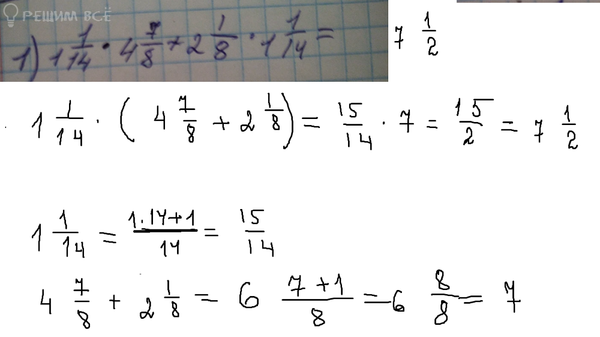 РЕШИМ ВСЁ
1) 1 1/14 · 4 7/8 + 2 1/8 · 1 1/14 = 7 1/2
1 1/14 · ( 4 7/8 + 2 1/8 ) = 15/14 · 7 = 15/2 = 7 1/2
1 1/14 = 1·14+1/14 = 15/14
4 7/8 + 2 1/8 = 6 7+1/8 = 6 8/8 = 7